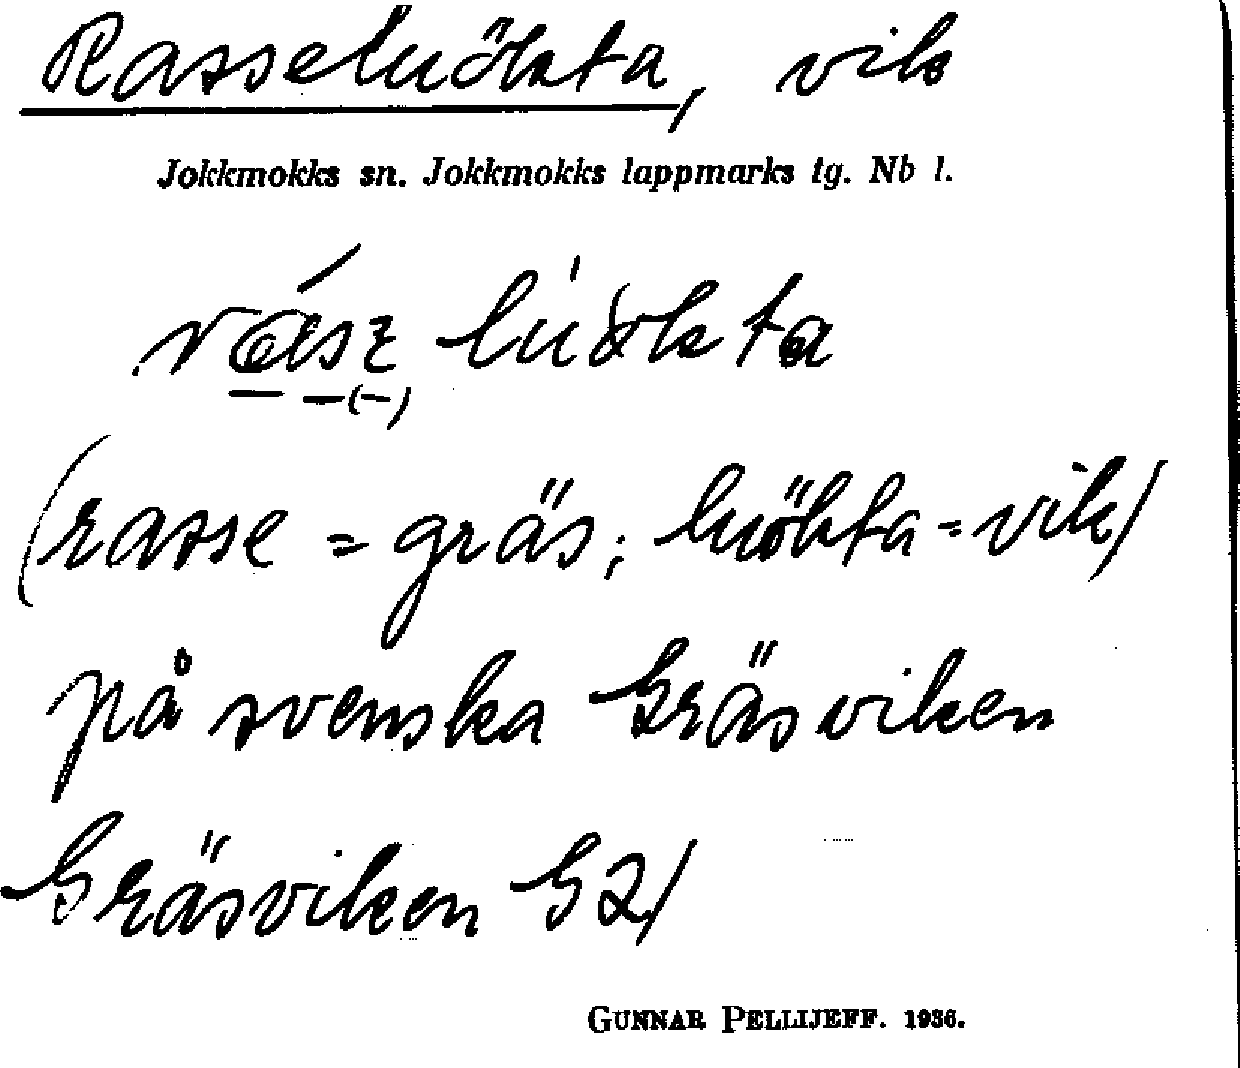 Rasseluökta, vik
Jokkmokks sn. Jokkmokks lappmarks tg. Nb l.
(rasse = gräs; luökta = vik)
på svenska Gräsviken
Gräsviken G2/
GUNNAR PELLIJEFF. 1936.